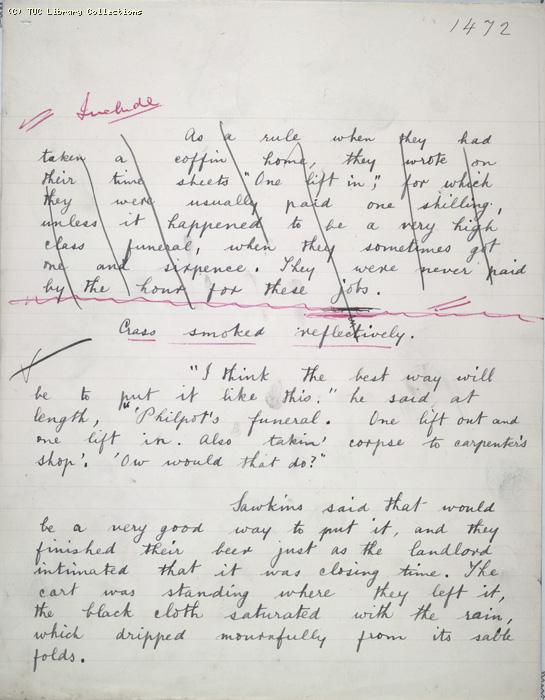 (C) TUC Library Collections
1472
Include
As a rule when they had
taken a coffin home, they wrote on
their time sheets "One lift in", for which
they were usually paid one shilling,
unless it happened to be a very high
class funeral, when they sometimes got
one and sixpence. They were never paid
by the hour for these jobs.
Crass smoked reflectively.
"I think the best way will
be to put it like this." he said at
length, "'Philpot's funeral. One lift out and
one lift in. Also takin' corpse to carpenter's
shop'. 'Ow would that do?"
Sawkins said that would
be a very good way to put it, and they
finished their beer just as the landlord
intimated that it was closing time. The
cart was standing where they left it,
the black cloth saturated with the rain,
which dripped mournfully from its sable
folds.